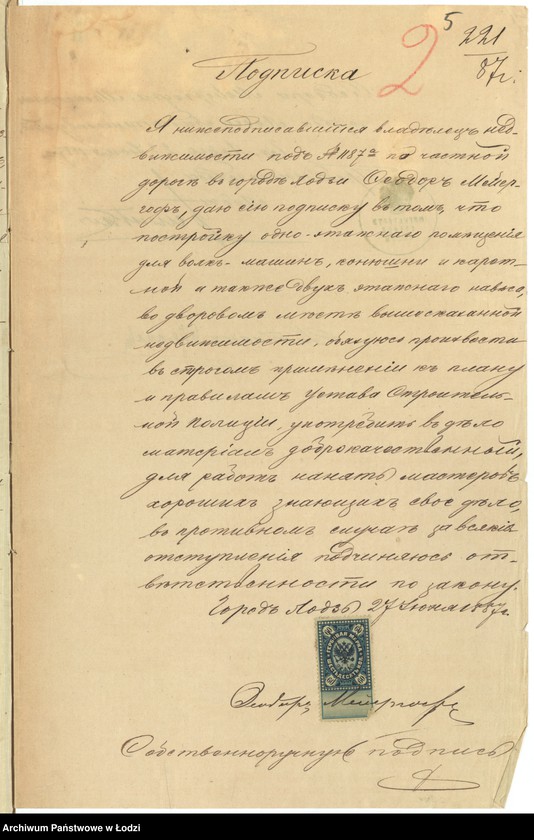 5
2
221
87 г.
Подписка
Я нижеподписавшійся владѣлецъ нед-
вижимости подъ № 1187а по частной
дорогѣ въ городѣ Лодзи Ѳеодоръ Мейер-
гофъ, даю сію подписку въ томъ, что
постройку одно-этажнаго помѣщенія
для волкъ-машинъ, конюшни и карет-
ной а также двухъ этажнаго навѣса,
во дворовомъ мѣстѣ вышесказанной
недвижимости, обязуюсь произвести
въ строгомъ примѣненіи къ плану
и правиламъ Устава Строитель-
ной Полиціи, употребить въ дѣло
матеріалъ доброкачественный,
для работъ нанять мастеровъ
хорошихъ знающихъ свое дѣло,
въ противномъ случаѣ за всякія
отступленія подчиняюсь от-
вѣтственности по закону.
Городъ Лодзь 27 1887 г.
60 60
ГЕРБОВАЯ МАРКА
ШЕСТЬДЕСЯТЪ КОП.
60 60
Ѳеодоръ Мейергофъ
Собственноручную подпись
Archiwum Państwowe w Łodzi